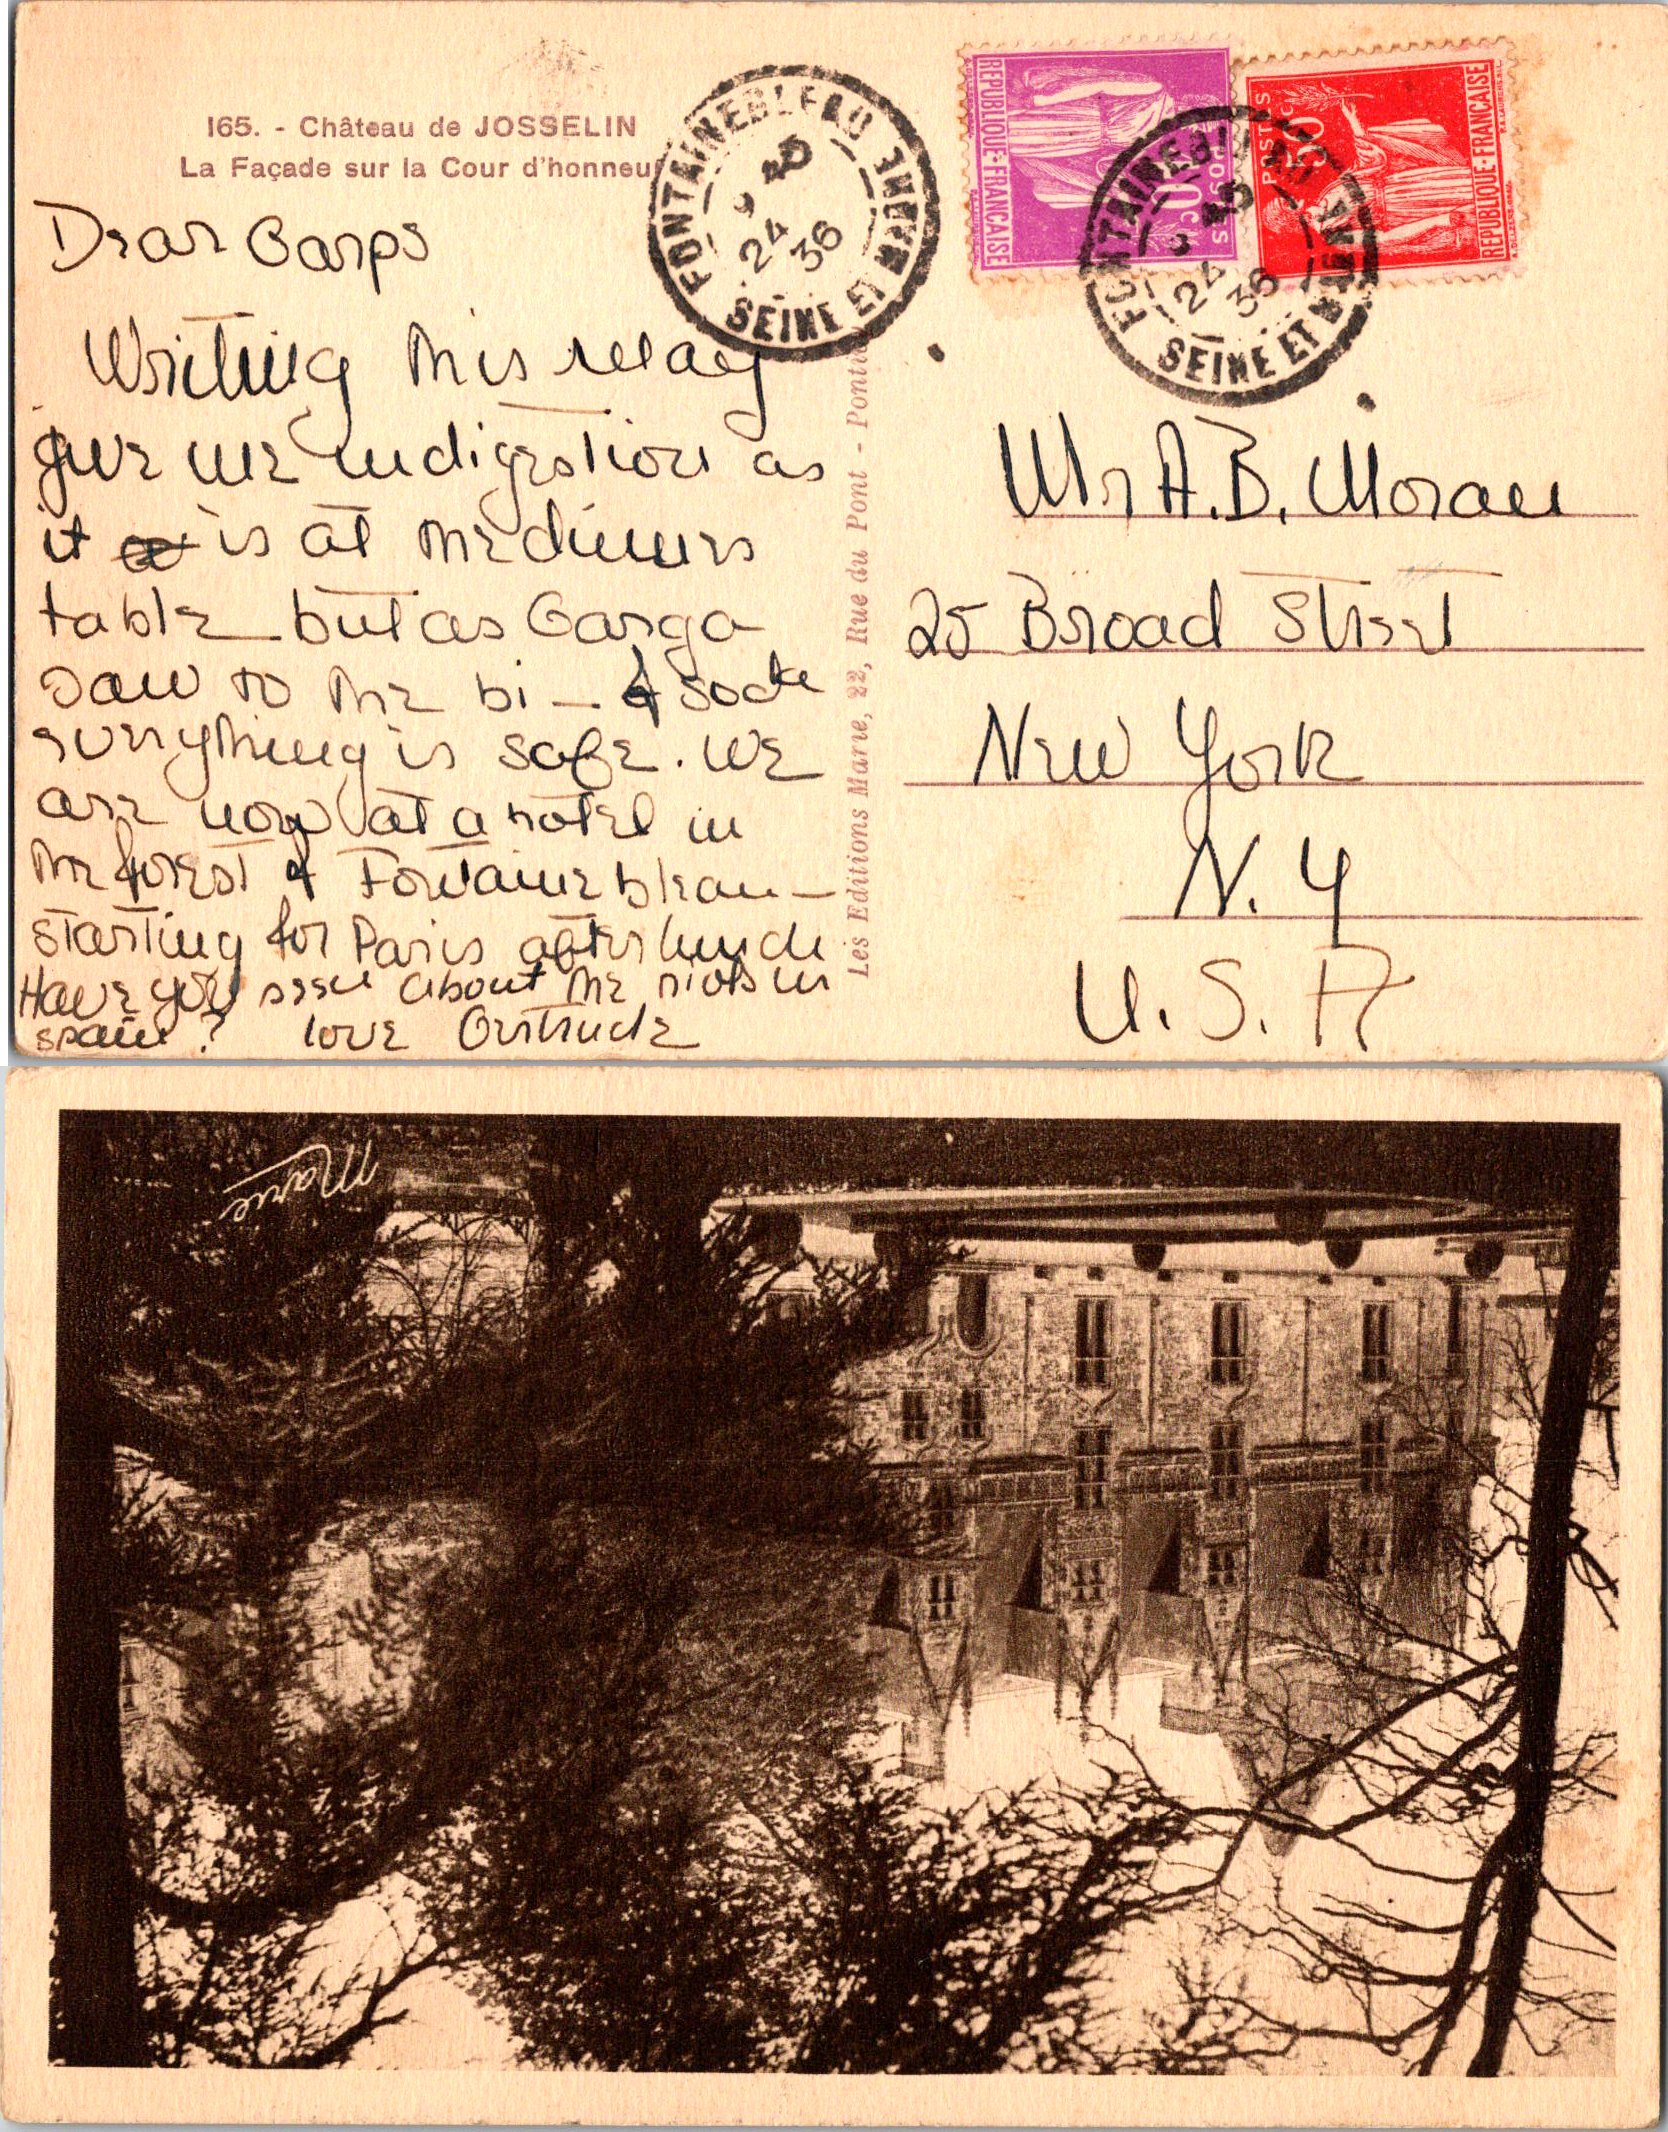 165. - Château de JOSSELIN
La Façade sur la Cour d'honneur
Dear Garps
Writing this may
give me indigestion as
it is at the dinner
table but as Garga
saw to the bi — & soda
everything is safe. We
are now at a hotel in
the forest of Fontainebleau —
starting for Paris after lunch
Have you seen about the riots in
Spain? love Gertrude
FONTAINEBLEAU SEINE ET MARNE
24
36
REPUBLIQUE·FRANÇAISE
POSTES
FONTAINEBLEAU SEINE ET MARNE
24
36
POSTES
REPUBLIQUE·FRANÇAISE
Les Editions Marie, 22, Rue du Pont -
Mr A.B. Moran
25 Broad Street
New York
N. Y
U. S. A
Marie